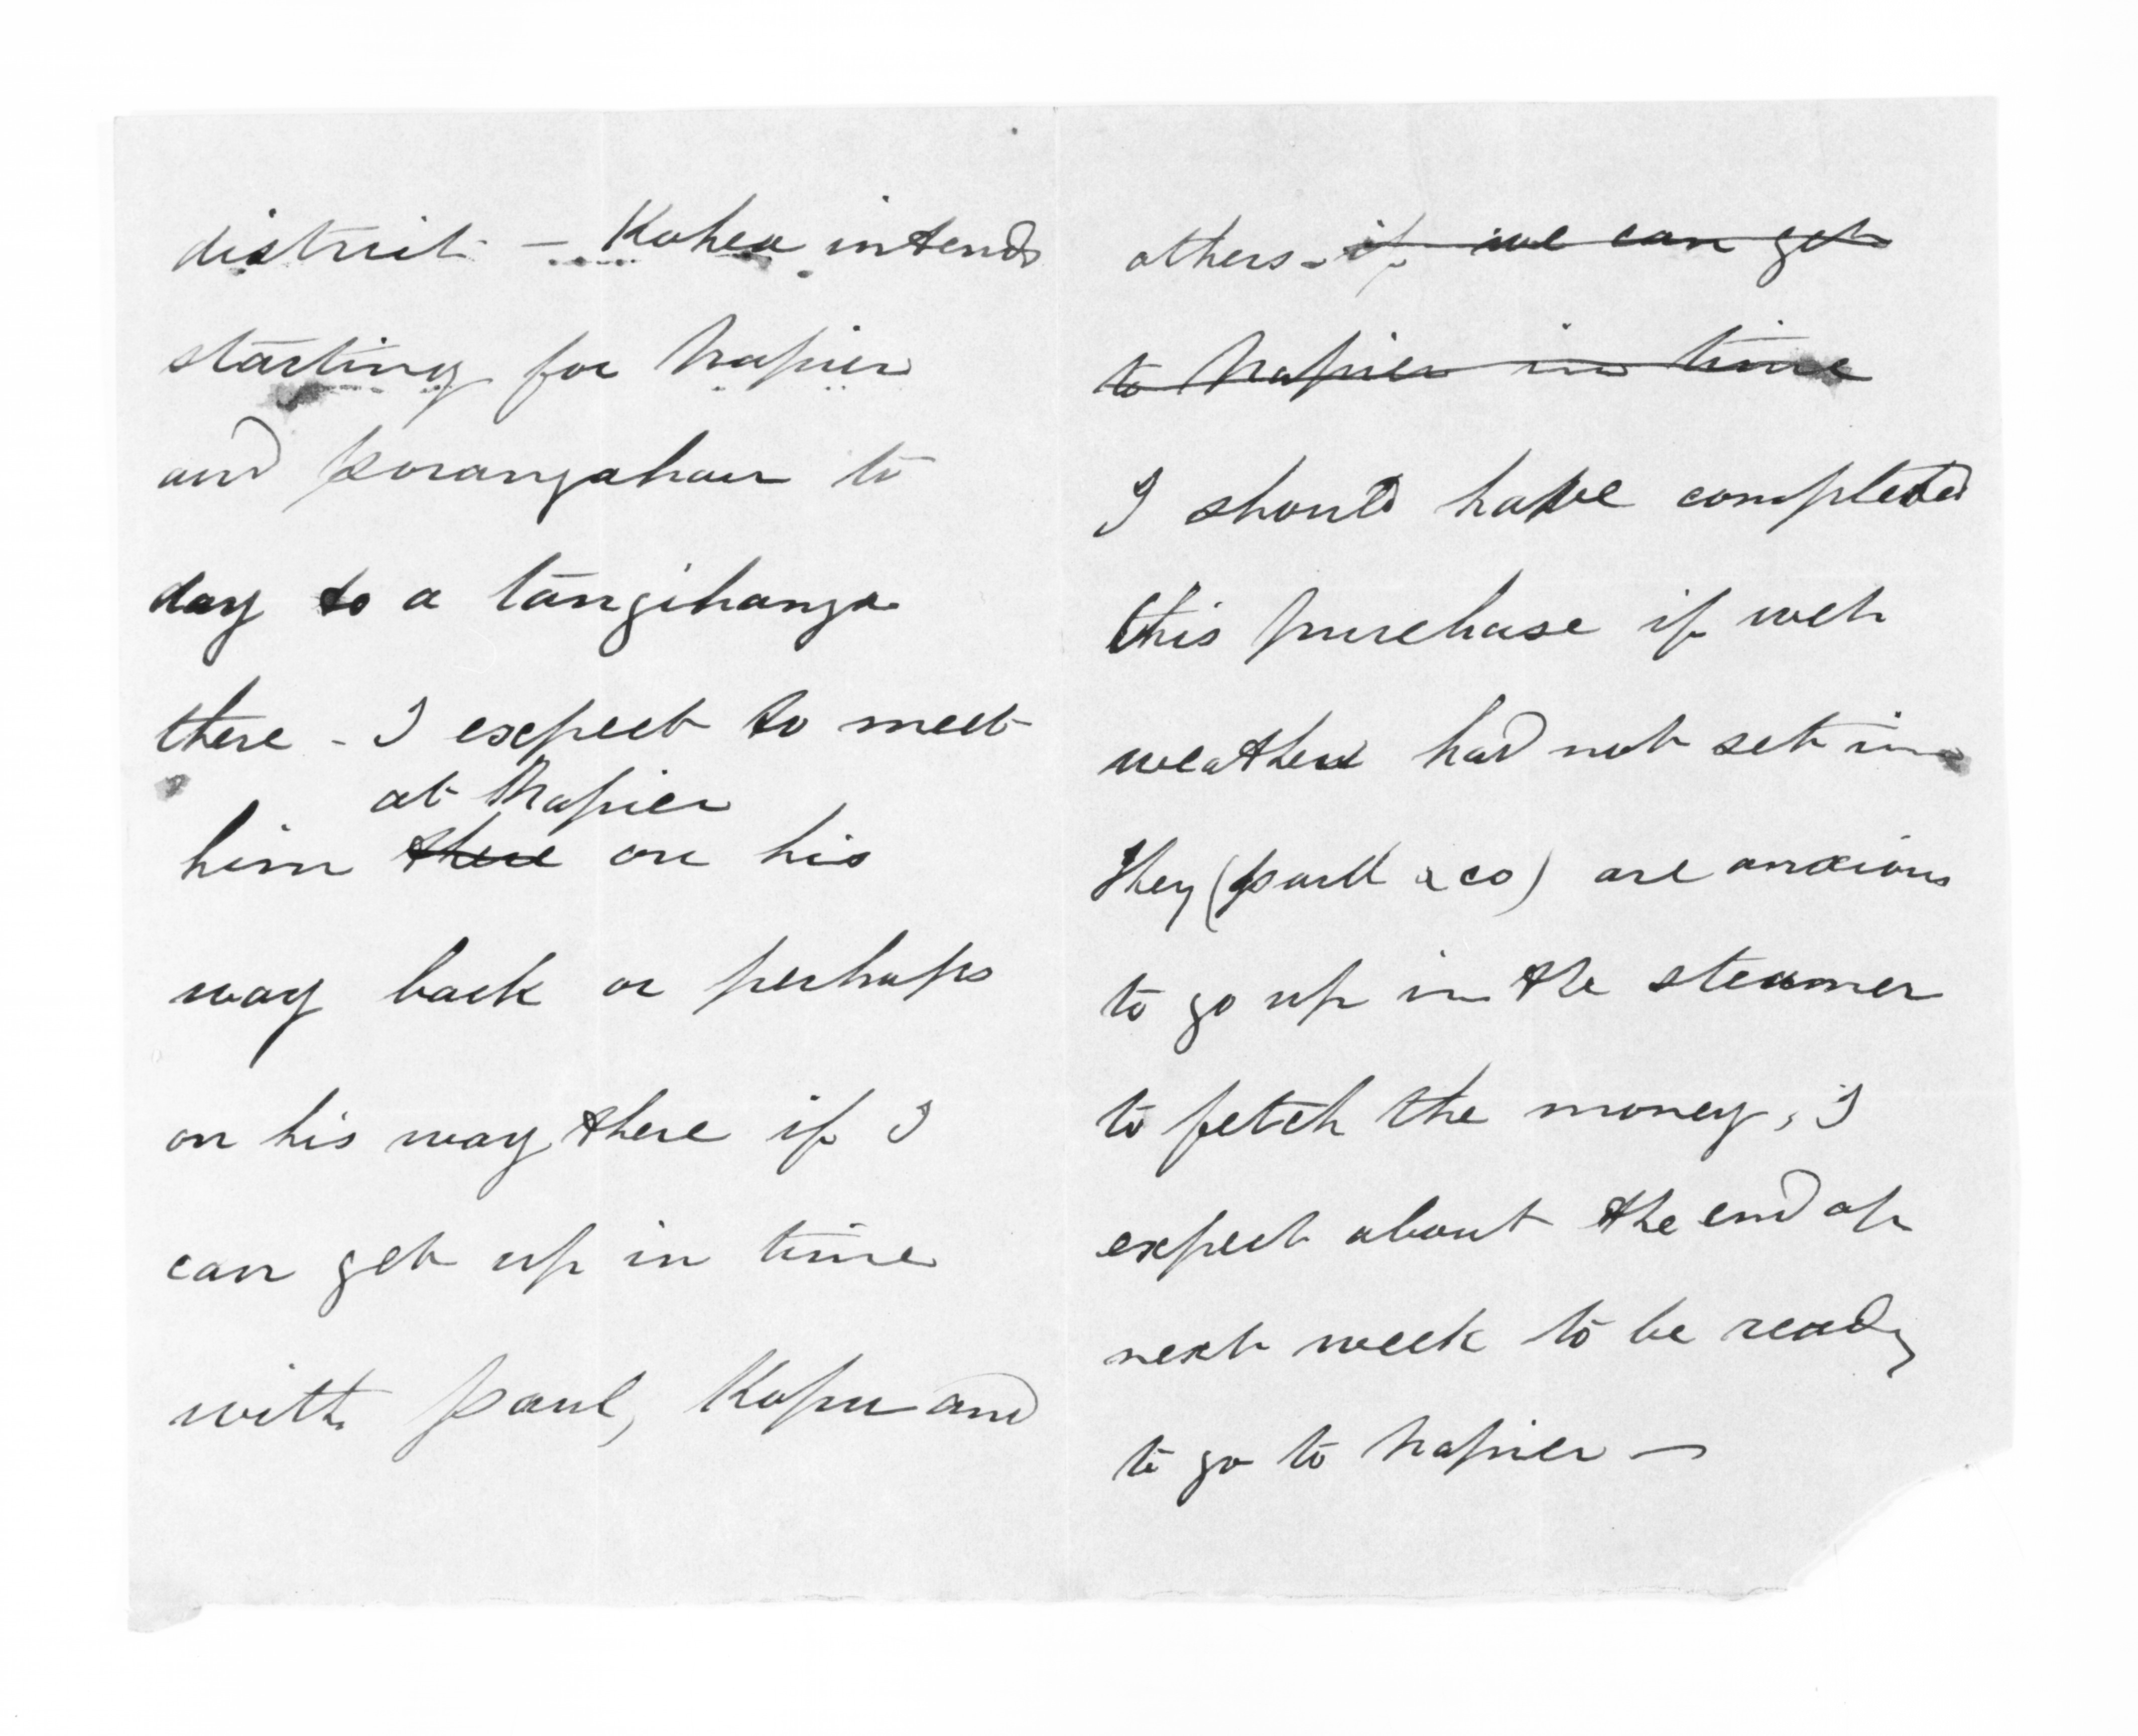 district - Kuhea intends
starting for Napier
and porangahau to
day to a tangihanga
there - I expect to meet
at Napier
him there on his
way back or perhaps
on his way there if I
can get up in time
with paul, Kopu and
others - if we can get
to Napier in time
I should have completed
this purchase if wet
weather had not set in
They (paul & co) are anxious
to go up in the steamer
to fetch the money, I
expect about the end of
next week to be ready
to go to Napier -